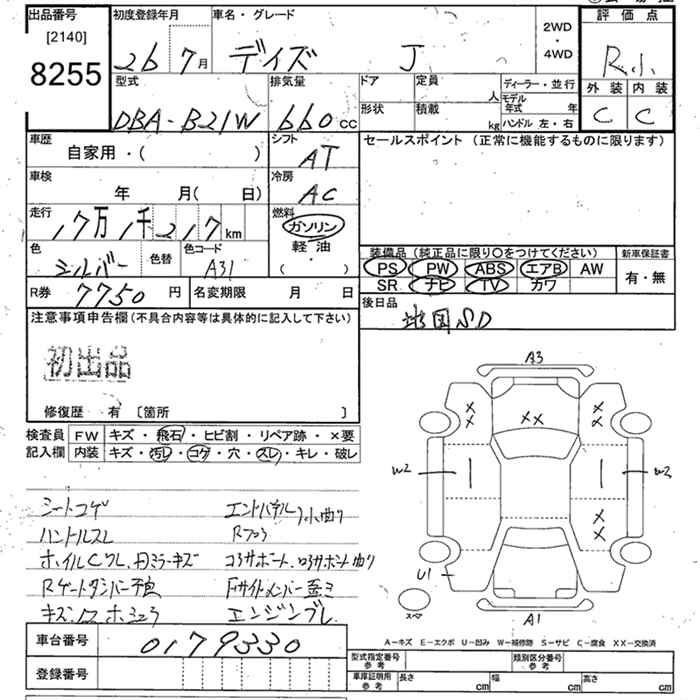 出品番号
[2140]
8255
初度登録年月
26 7月
車名・グレード
デイズ J
2WD
・
4WD
評価点
R小
外装 内装
C C
型式
DBA-B21W
排気量
660cc
ドア
形状
定員 人
積載 kg
ディーラー・並行
モデル年式 年
ハンドル 左・右
車歴
自家用・( )
シフト
AT
セールスポイント (正常に機能するものに限ります)
車検
年 月( 日)
冷房
AC
走行
17万1千217km
燃料
ガソリン
軽・油
・( )
色
シルバー
色替
色コード
A31
装備品 (純正品に限り○をつけてください)
PS PW ABS エアB AW
SR ナビ TV カワ
新車保証書
有・無
R券 7750円
名変期限 月 日
後日品
地図SD
注意事項申告欄(不具合内容等は具体的に記入して下さい)
初出品
修復歴 有 〔箇所 〕
検査員 FW キズ・飛石・ヒビ割・リペア跡・×要
記入欄 内装 キズ・汚レ・コゲ・穴・スレ・キレ・破レ
シートコゲ
ハンドルスレ
エンドパネル
エンジンブレ
車台番号 0179330
登録番号
A3
×× ×× ××
W2 W3
××
U1
スペア
A1
A-キズ E-エクボ U-凹み W-補修跡 S-サビ C-腐食 XX-交換済
型式指定番号 参考
類別区分番号 参考
車庫証明用 参考 長さ cm 幅 cm 高さ cm